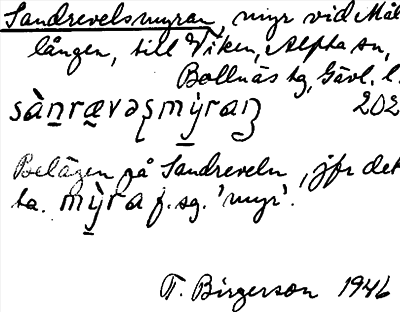 Sandrevelsmyran, myr vid Mål
lången, till Viken, Alfta sn,
Bollnäs tg, Gävl. l.
sàn̲ræ̲vəʂmỳ̲raɳ 202
Belägen på Sandreveln, jfr det
ta. mỳ̲ra f. sg. 'myr'.
T. Birgerson 1946